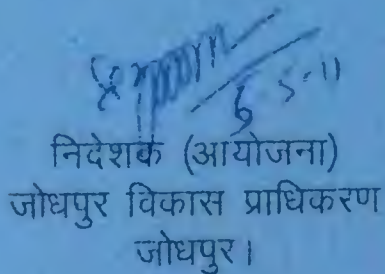 निदेशक (आयोजना)
जोधपुर विकास प्राधिकरण
जोधपुर।